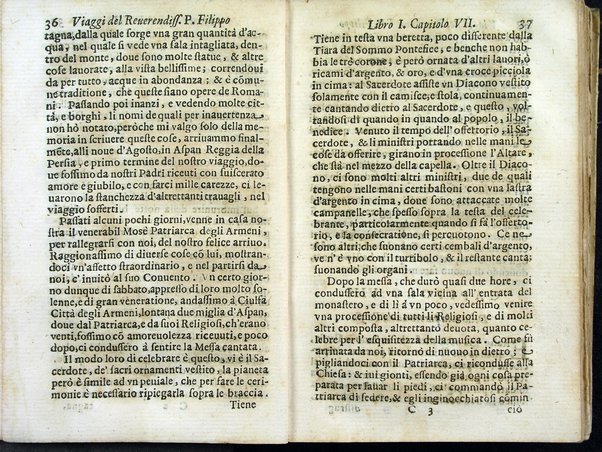 36 Viaggi del Reuerendiss. P. Filippo
tagna, dalla quale sorge vna gran quantità d'ac-
qua, nel quale si vede vna sala intagliata, den-
tro del monte, doue sono molte statue, & altre
cose lauorate, alla vista bellissime; correndoui
da per tutto, acque in abondanza: & è commu-
ne traditione, che queste siano opere de Roma-
ni. Passando poi inanzi, e vedendo molte cit-
tà, e borghi, li nomi de quali per inauertenza
non hò notato, peròche mi valgo solo della me-
moria in scriuere queste cose, arriuammo final-
mête, alli noue d'Agosto, in Aspan Reggia della
Persia, e primo termine del nostro viaggio, do-
ue fossimo da nostri Padri riceuti con suiscerato
amore è giubilo, e con farci mille carezze, ci le-
uarono la stanchezza d'altrettanti trauagli, nel
viaggio sofferti.
Passati alcuni pochi giorni, venne in casa no-
stra il venerabil Mosè Patriarca degli Armeni,
per rallegrarsi con noi, del nostro felice arriuo.
Raggionassimo di diuerse cose cō lui, mostran-
doci vn'affetto straordinario, e nel partirsi da
noi, c'inuitò al suo Conuento. Vn certo gior-
no dunque di sabbato, appresso di loro molto so-
lenne, e di gran veneratione, andassimo à Ciulfa
Città degli Armeni, lontana due miglia d'Aspan,
doue dal Patriarca, e da suoi Religiosi, ch'erano
venti, fossimo cō amoreuolezza riceuuti, e poco
dopo, ci condussero à sentire la Messa cantata.
Il modo loro di celebrare è questo, vi è il Sa-
cerdote, de' sacri ornamenti vestito, la pianeta
però è simile ad vn peniale, che per fare le ceri-
monie è necessario ripiegarla sopra le braccia.
Tiene
Libro I. Capitolo VII. 37
Tiene in testa vna beretta, poco differente dalla
Tiara del Sommo Pontefice, e benche non hab-
bia le tré corone, è però ornata d'altri lauori, ò
ricami d'argento, & oro, e d'vna croce picciola
in cima: al Sacerdote assiste vn Diacono vestito
solamente con il camisce, e stola, continuamen-
te cantando dietro al Sacerdote, e questo, vol-
tandosi di quando in quando al popolo, il be-
nedice. Venuto il tempo dell'offertorio, il Sa-
cerdote, & li ministri portando nelle mani le
cose da offerire, girano in processione l'Altare,
che stà nel mezzo della capella. Oltre il Diaco-
no, ci sono molti altri ministri, due de quali
tengono nelle mani certi bastoni con vna lastra
d'argento in cima, doue sono attaccate molte
campanelle, che spesso sopra la testa del cele-
brante, particolarmente quando si fà l'offerto-
rio, e la consecratione, si percuotono. Ce ne
sono altri; che suonano certi cembali d'argento,
ve n'è vno con il turribolo, & il restante canta:
suonando gli organi.
Dopo la messa, che durò quasi due hore, ci
condussero ad vna sala vicina all'entrata del
monastero, e di lì à vn poco, vedessimo venire
vna processione di tutti li Religiosi, e di molti
altri composta, altrettantò deuota, quanto ce-
lebre per l'esquisitezza della musica. Come fù
arriuata da noi, ritornò di nuouo in dietro; e
pigliandoci con il Patriarca, ci ricondusse alla
Chiesa: & iui gionti, essendo già ogni cosa pre-
parata per lauar li piedi, ci commandò il Pa-
triarca di sedere, & egli inginocchiatosi comin
C 3 ciò